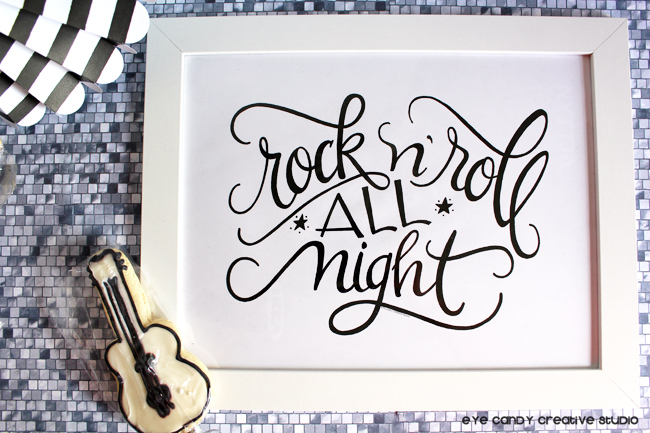 rock n' roll
ALL
night
EYE CANDY CREATIVE STUDIO